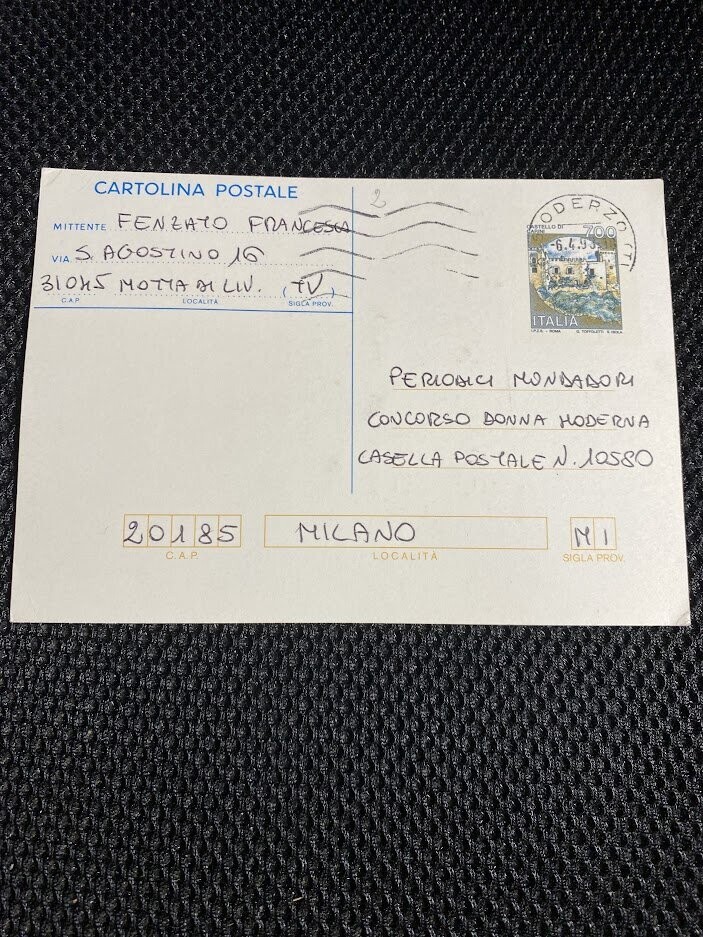 CARTOLINA POSTALE
2
MITTENTE FENZATO FRANCESCA
VIA S. AGOSTINO 16
31045 MOTTA DI LIV. (TV)
C.A.P. LOCALITÀ SIGLA PROV.
ODERZO (TV)
CASTELLO DI CARINI 700
-6.4.93
ITALIA
I.P.Z.S. - ROMA
PERIODICI MONDADORI
CONCORSO DONNA MODERNA
CASELLA POSTALE N. 10580
20185 MILANO MI
C.A.P. LOCALITÀ SIGLA PROV.